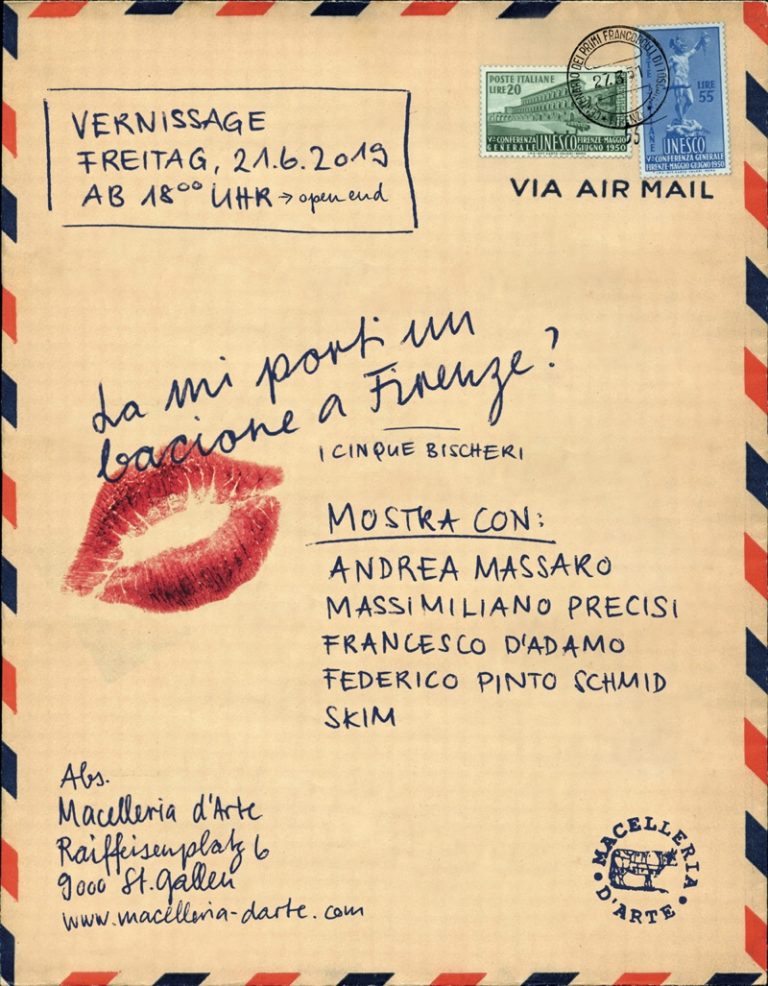 VERNISSAGE
FREITAG, 21.6.2019
AB 18⁰⁰ UHR → open end
POSTE ITALIANE
LIRE 20
Vª CONFERENZA UNESCO FIRENZE-MAGGIO
GENERALE GIUGNO 1950
27.3.51
LIRE
55
UNESCO
Vª CONFERENZA GENERALE
FIRENZE-MAGGIO-GIUGNO 1950
VIA AIR MAIL
La mi porti un
bacione a Firenze?
I CINQUE BISCHERI
MOSTRA CON:
ANDREA MASSARO
MASSIMILIANO PRECISI
FRANCESCO D'ADAMO
FEDERICO PINTO SCHMID
SKIM
Abs.
Macelleria d'Arte
Raiffeisenplatz 6
9000 St.Gallen
www.macelleria-darte.com
MACELLERIA
D'ARTE